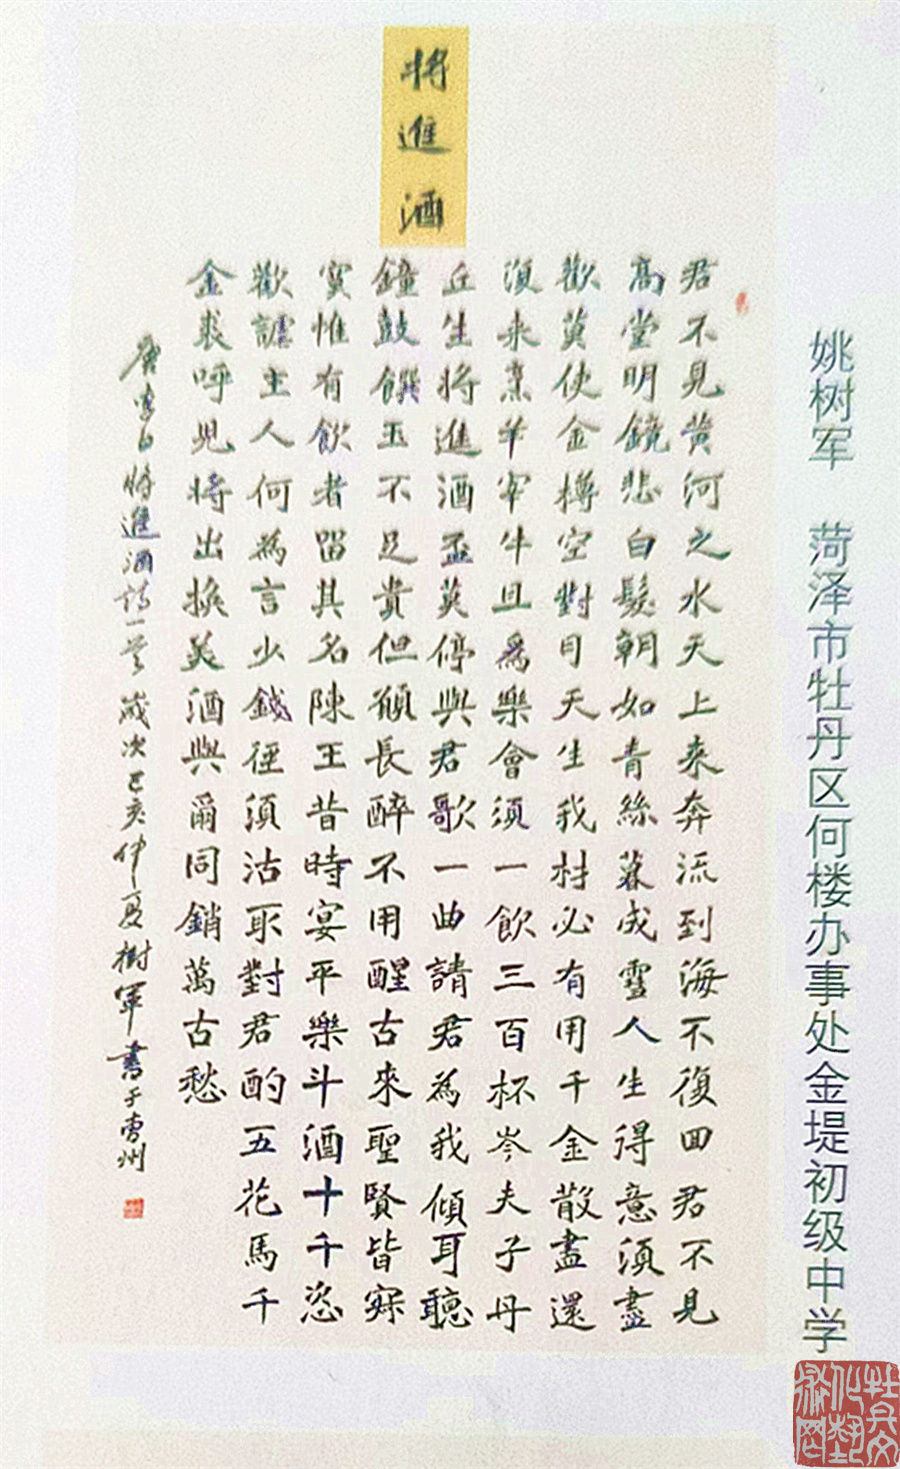 将進酒
君不見黄河之水天上来奔流到海不復回君不見
高堂明鏡悲白髮朝如青絲暮成雪人生得意須盡
歡莫使金樽空對月天生我材必有用千金散盡還
須来烹羊宰牛且為樂會須一飲三百杯岑夫子丹
丘生将進酒盃莫停與君歌一曲請君為我傾耳聽
鐘鼓饌玉不足貴但願長醉不用醒古來聖賢皆寂
寞惟有飲者留其名陳王昔時宴平樂斗酒十千恣
歡謔主人何為言少錢徑須沽取對君酌五花馬千
金裘呼兒将出換美酒與爾同銷萬古愁
唐李白将進酒詩一首歲次己亥仲夏樹軍書于曹州
姚树军 菏泽市牡丹区何楼办事处金堤初级中学